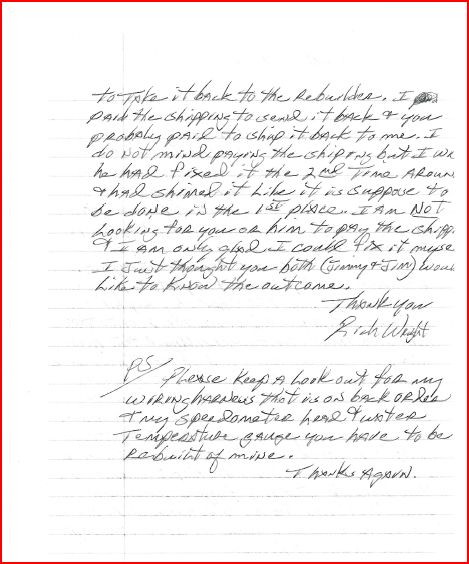 to take it back to the rebuilder. I
paid the shipping to send it back & you
probaly paid to ship it back to me. I
do not mind paying the shiping but I wi
he had fixed it the 2nd time aroun
& had shimed it like it is suppose to
be done in the 1st place. I am NOT
looking for you or him to pay the shipp.
& I am only glad I could fix it myse
I just thought you both (Jimmy & Jim) woul
like to know the outcome.
Thank you
Rich Wright
PS/ Please keep a look out for my
wiring harness that is on back order
& my speedometer head & water
temperature gauge you have to be
rebuilt of mine.
Thanks Again.